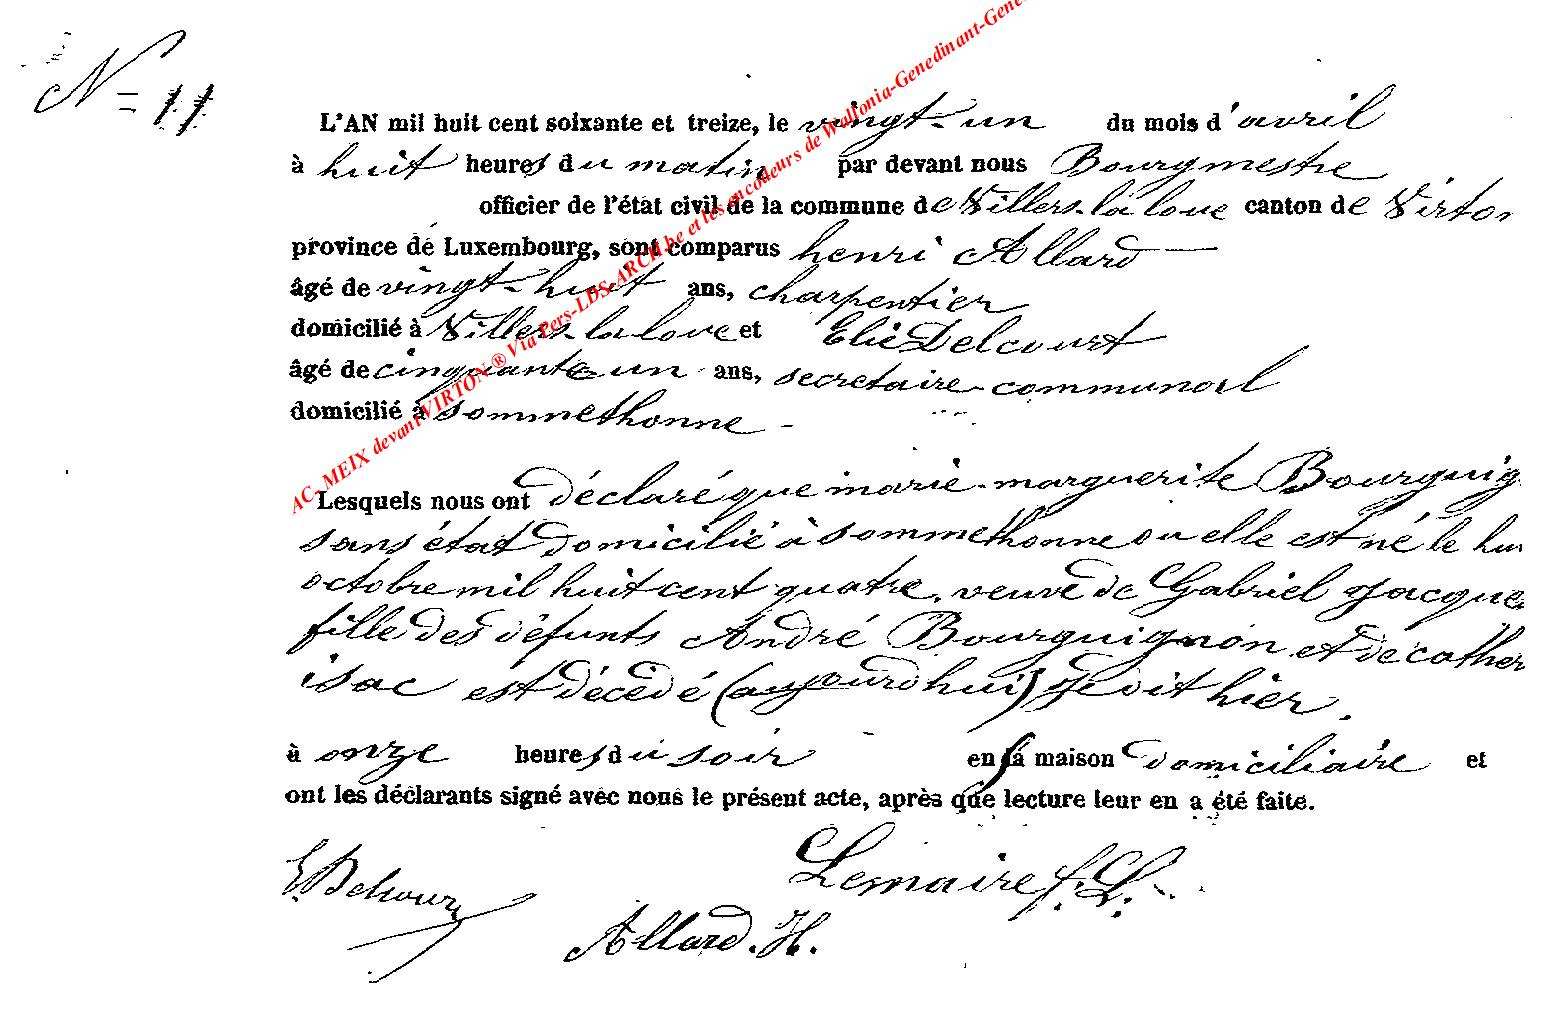 N= 11
L'AN mil huit cent soixante et treize, le vingt-un du mois d'avril
à huit heures du matin par devant nous Bourgmestre
officier de l'état civil de la commune de Villers-la loue canton de Virton
province de Luxembourg, sont comparus henri Allard
âgé de vingt-huit ans, charpentier
domicilié à Villers-la loue et Elie Delcourt
âgé de cinquante un ans, secretaire-communal
domicilié à sommethonne -
Lesquels nous ont déclaré que marie-marguerite Bourguig
sans état domicilié à sommethonne ou elle est né le
octobre mil huit cent quatre, veuve de Gabriel Jacques
fille des défunts André Bourguignon et de cather
isac est décédé (aujourdhui) Je dit hier.
à onze heures du soir en sa maison domiciliaire et
ont les déclarants signé avec nous le présent acte, après que lecture leur en a été faite.
E. Delcourt
Lemaire f. L.
Allard. H.
AC_MEIX devant VIRTON ® Via Pers-LDS-ARCH.be et les encodeurs de Wallonia-Genedinant-Gene